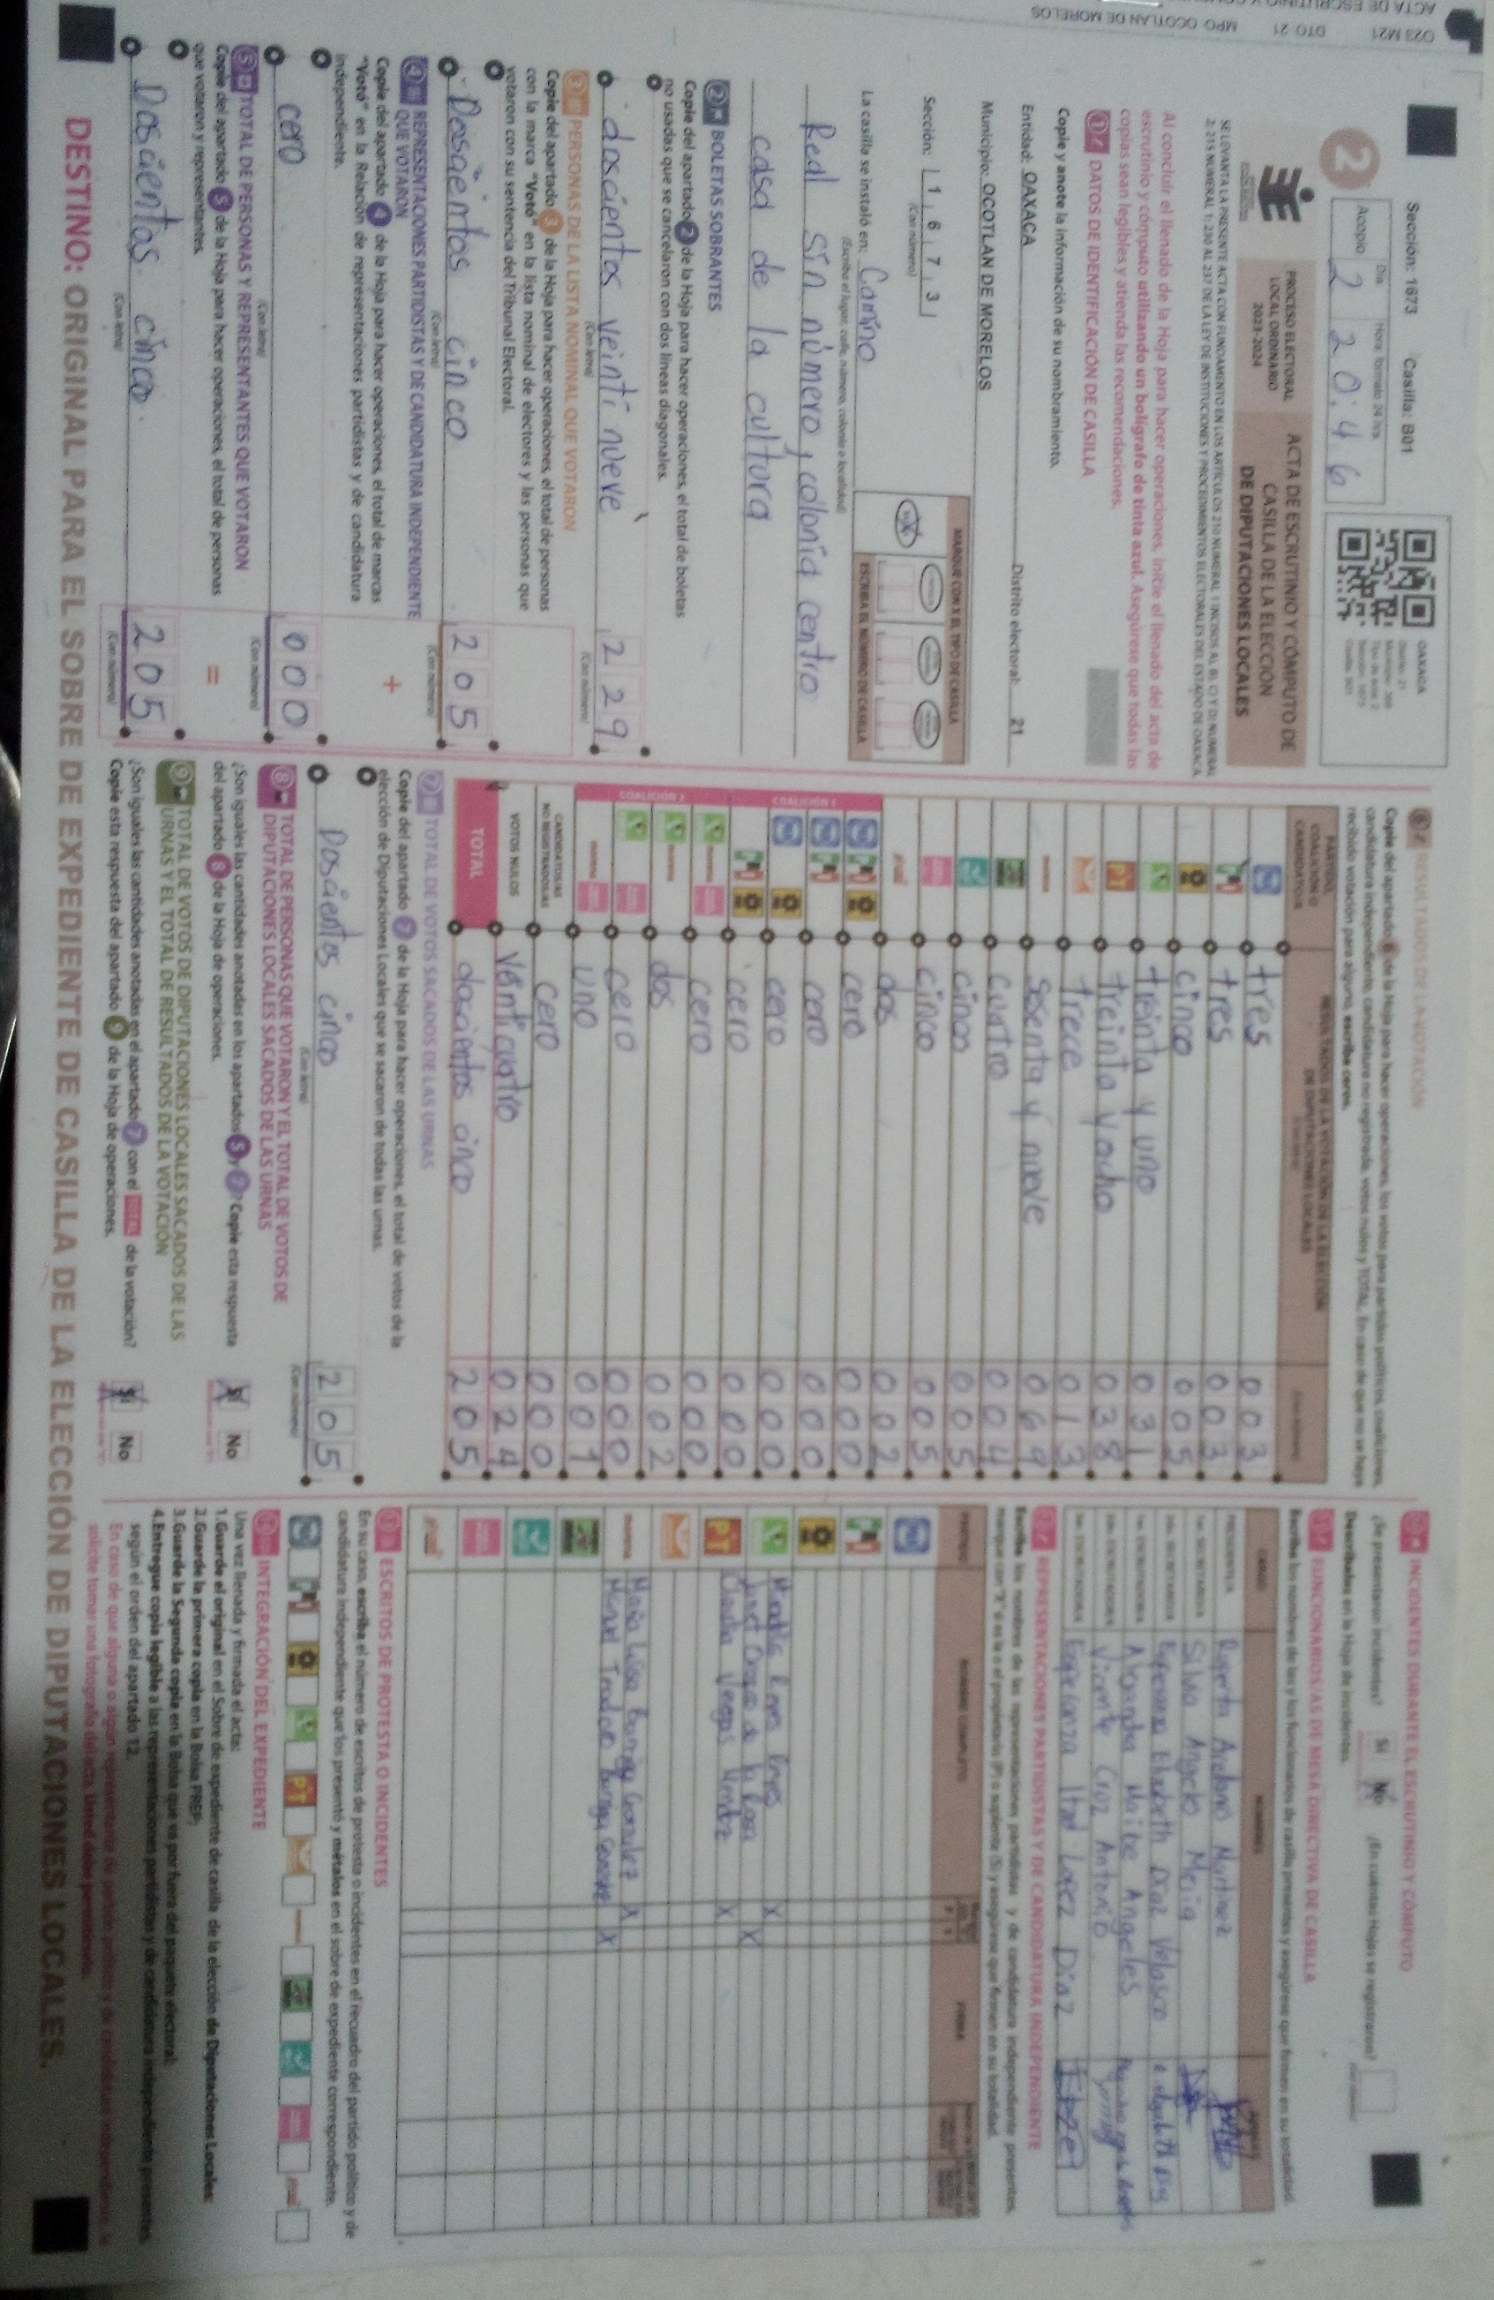 O23 M21 DTO 21 MPO OCOTLAN DE MORELOS
Sección: 1673 Casilla: B01
Día Hora formato 24 hrs.
Acopio 2 20:46
2
OAXACA
PROCESO ELECTORAL
LOCAL ORDINARIO
2023-2024
ACTA DE ESCRUTINIO Y CÓMPUTO DE
CASILLA DE LA ELECCIÓN
DE DIPUTACIONES LOCALES
Al concluir el llenado de la Hoja para hacer operaciones, inicie el llenado del acta de
escrutinio y cómputo utilizando un bolígrafo de tinta azul. Asegúrese que todas las
copias sean legibles y atienda las recomendaciones.
1 DATOS DE IDENTIFICACIÓN DE CASILLA
Copie y anote la información de su nombramiento.
Entidad: OAXACA Distrito electoral: 21
Municipio: OCOTLAN DE MORELOS
Sección: 1 6 7 3
(Con número)
MARQUE CON X EL TIPO DE CASILLA
ESCRIBA EL NÚMERO DE CASILLA
La casilla se instaló en: Camino
(Escriba el lugar: calle, número, colonia o localidad)
Real sin número, colonia centro
casa de la cultura
2 BOLETAS SOBRANTES
Copie del apartado 2 de la Hoja para hacer operaciones, el total de boletas
no usadas que se cancelaron con dos líneas diagonales.
doscientos veinti nueve 229
(Con letra) (Con número)
3 PERSONAS DE LA LISTA NOMINAL QUE VOTARON
Copie del apartado 3 de la Hoja para hacer operaciones, el total de personas
con la marca "Votó" en la lista nominal de electores y las personas que
votaron con su sentencia del Tribunal Electoral.
Doscientos cinco 205
(Con letra) (Con número)
4 REPRESENTACIONES PARTIDISTAS Y DE CANDIDATURA INDEPENDIENTE
QUE VOTARON
+
Copie del apartado 4 de la Hoja para hacer operaciones, el total de marcas
"Votó" en la Relación de representaciones partidistas y de candidatura
independiente.
cero 000
(Con letra) (Con número)
5 TOTAL DE PERSONAS Y REPRESENTANTES QUE VOTARON
Copie del apartado 5 de la Hoja para hacer operaciones, el total de personas
que votaron y representantes.
=
Doscientos cinco. 205
(Con letra) (Con número)
6 RESULTADOS DE LA VOTACIÓN
Copie del apartado 6 de la Hoja para hacer operaciones, los votos para partidos políticos, coaliciones,
candidatura independiente, candidatura no registrada, votos nulos y TOTAL. En caso de que no se haya
recibido votación para alguno, escriba ceros.
PARTIDO,
COALICIÓN O
CANDIDATURA
RESULTADOS DE LA VOTACIÓN DE LA ELECCIÓN
DE DIPUTACIONES LOCALES
tres 003
tres 003
cinco 005
treinta y uno 031
PT treinta y ocho 038
trece 013
morena sesenta y nueve 069
cuatro 004
cinco 005
cinco 005
dos 002
COALICIÓN 1
cero 000
cero 000
cero 000
cero 000
COALICIÓN 2
cero 000
dos 002
cero 000
uno 001
CANDIDATURAS
NO REGISTRADAS cero 000
VOTOS NULOS Veinti cuatro 024
TOTAL doscientos cinco 205
7 TOTAL DE VOTOS SACADOS DE LAS URNAS
Copie del apartado 7 de la Hoja para hacer operaciones, el total de votos de la
elección de Diputaciones Locales que se sacaron de todas las urnas.
Doscientos cinco 205
(Con letra) (Con número)
8 TOTAL DE PERSONAS QUE VOTARON Y EL TOTAL DE VOTOS DE
DIPUTACIONES LOCALES SACADOS DE LAS URNAS
¿Son iguales las cantidades anotadas en los apartados 5 y 7? Copie esta respuesta
del apartado 8 de la Hoja de operaciones.
Sí No
9 TOTAL DE VOTOS DE DIPUTACIONES LOCALES SACADOS DE LAS
URNAS Y EL TOTAL DE RESULTADOS DE LA VOTACIÓN
¿Son iguales las cantidades anotadas en el apartado 7 con el TOTAL de la votación?
Copie esta respuesta del apartado 9 de la Hoja de operaciones.
Sí No
10 INCIDENTES DURANTE EL ESCRUTINIO Y CÓMPUTO
¿Se presentaron incidentes? Sí No ¿En cuántas Hojas se registraron?
Descríbalos en la Hoja de incidentes.
11 FUNCIONARIOS/AS DE MESA DIRECTIVA DE CASILLA
Escriba los nombres de las y los funcionarios de casilla presentes y asegúrese que firmen en su totalidad.
Roberta Arellano Martínez
Silvia Angeles Mejia
Esperanza Elizabeth Díaz Velasco
Alexandra Maite Angeles
Vicente Cruz Antonio
Esperanza Itzel López Díaz Itzel
12 REPRESENTACIONES PARTIDISTAS Y DE CANDIDATURA INDEPENDIENTE
Escriba los nombres de las representaciones partidistas y de candidatura independiente presentes,
marque con "X" si es la o el propietario (P) o suplente (S) y asegúrese que firmen en su totalidad.
PT Claudia Venegas Mendez X
morena Maria Luisa Barriga Gonzalez X
13 ESCRITOS DE PROTESTA O INCIDENTES
En su caso, escriba el número de escritos de protesta o incidentes en el recuadro del partido político y de
candidatura independiente que los presentó y métalos en el sobre de expediente correspondiente.
14 INTEGRACIÓN DEL EXPEDIENTE
Una vez llenada y firmada el acta:
1.Guarde el original en el Sobre de expediente de casilla de la elección de Diputaciones Locales.
2.Guarde la primera copia en la Bolsa PREP.
3.Guarde la Segunda copia en la Bolsa que va por fuera del paquete electoral.
4.Entregue copia legible a las representaciones partidistas y de candidatura independiente presentes,
según el orden del apartado 12.
DESTINO: ORIGINAL PARA EL SOBRE DE EXPEDIENTE DE CASILLA DE LA ELECCIÓN DE DIPUTACIONES LOCALES.